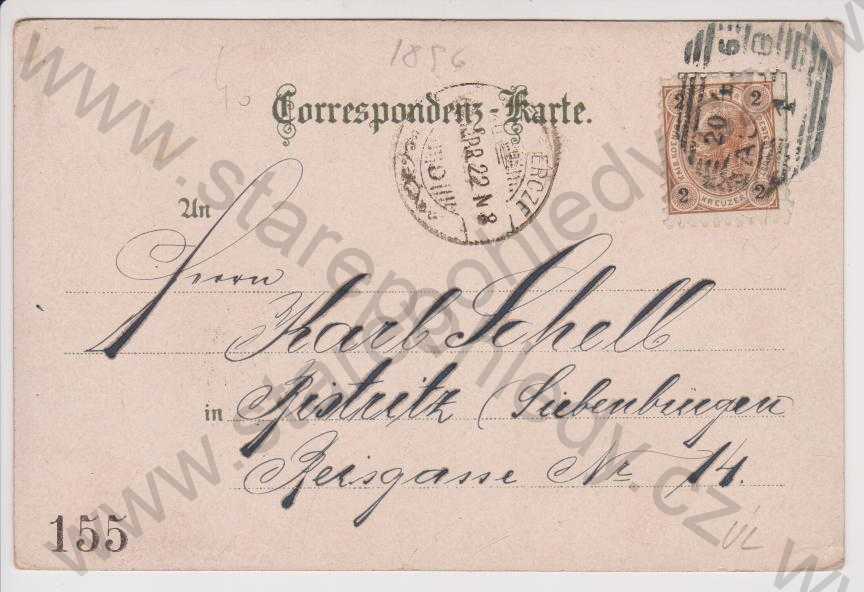 1896
Correspondenz-Karte.
2 2
2 2
KREUZER
APR 22 N 8
An
Herrn
Karl Schell
in Bistritz (Siebenbürgen
Beisgasse Nr 14.
155
VL
www.starepohledy.cz